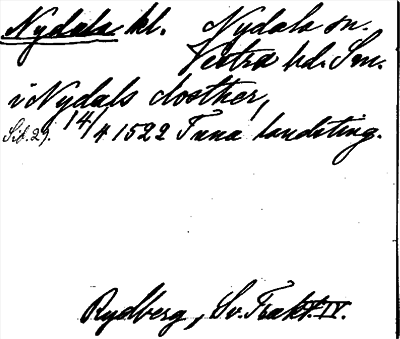 Nydala kl. Nydala sn.
Vestra hd. Sm.
i Nydals closther,
Sid. 29. 14/4 1522 Tuna landsting.
Rydberg, Sv. Trakt. IV.